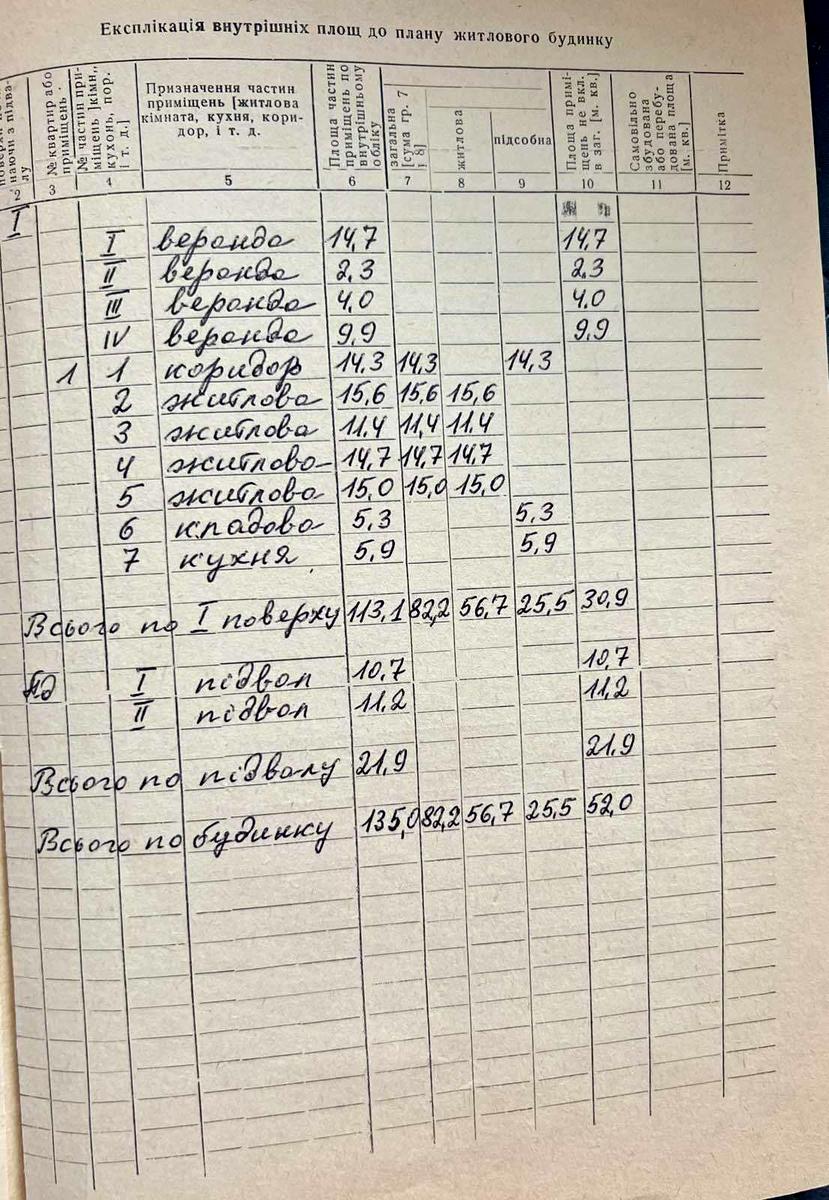 Експлікація внутрішніх площ до плану житлового будинку
наючи з підва-
лу
№ квартир або
приміщень .
№ частин при-
міщень [кімн.,
кухонь, пор.
і т. д.]
Призначення частин
приміщень [житлова
кімната, кухня, кори-
дор, і т. д.
Площа частин
приміщень по
внутрішньому
обліку
загальна
[сума гр. 7
і 8]
житлова
підсобна
Площа примі-
щень не вкл.
в заг. [м. кв.]
Самовільно
збудована
або перебу-
дована площа
[м. кв.]
Примітка
2 3 4 5 6 7 8 9 10 11 12
I
I веранда 14,7 14,7
II веранда 2,3 2,3
III веранда 4,0 4,0
IV веранда 9,9 9,9
1 1 коридор 14,3 14,3 14,3
2 житлова 15,6 15,6 15,6
3 житлова 11,4 11,4 11,4
4 житлова 14,7 14,7 14,7
5 житлова 15,0 15,0 15,0
6 кладова 5,3 5,3
7 кухня 5,9 5,9
Всього по I поверху 113,1 82,2 56,7 25,5 30,9
пд I підвал 10,7 10,7
II підвал 11,2 11,2
Всього по підвалу 21,9 21,9
Всього по будинку 135,0 82,2 56,7 25,5 52,0